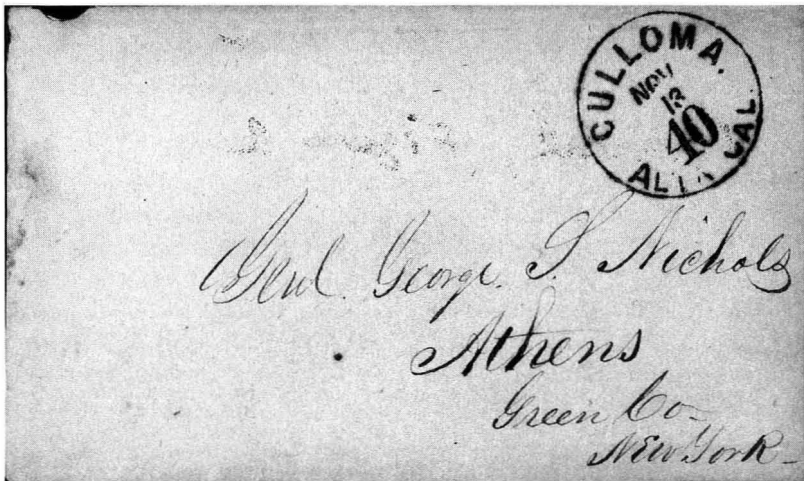 CULLOMA.
NOV
13
40
ALTA CAL.
Genl. George. S. Nichols
Athens
Green Co-
New York-